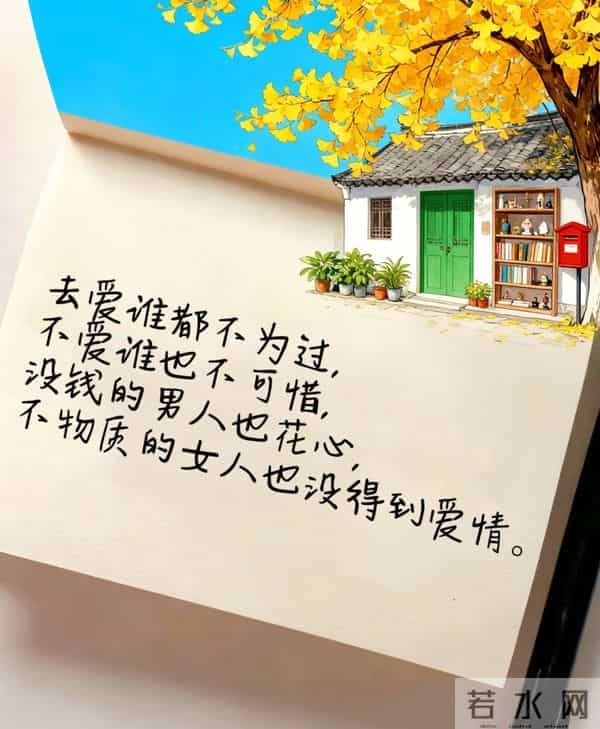 去爱谁都不为过，
不爱谁也不可惜，
没钱的男人也花心，
不物质的女人也没得到爱情。
若水网